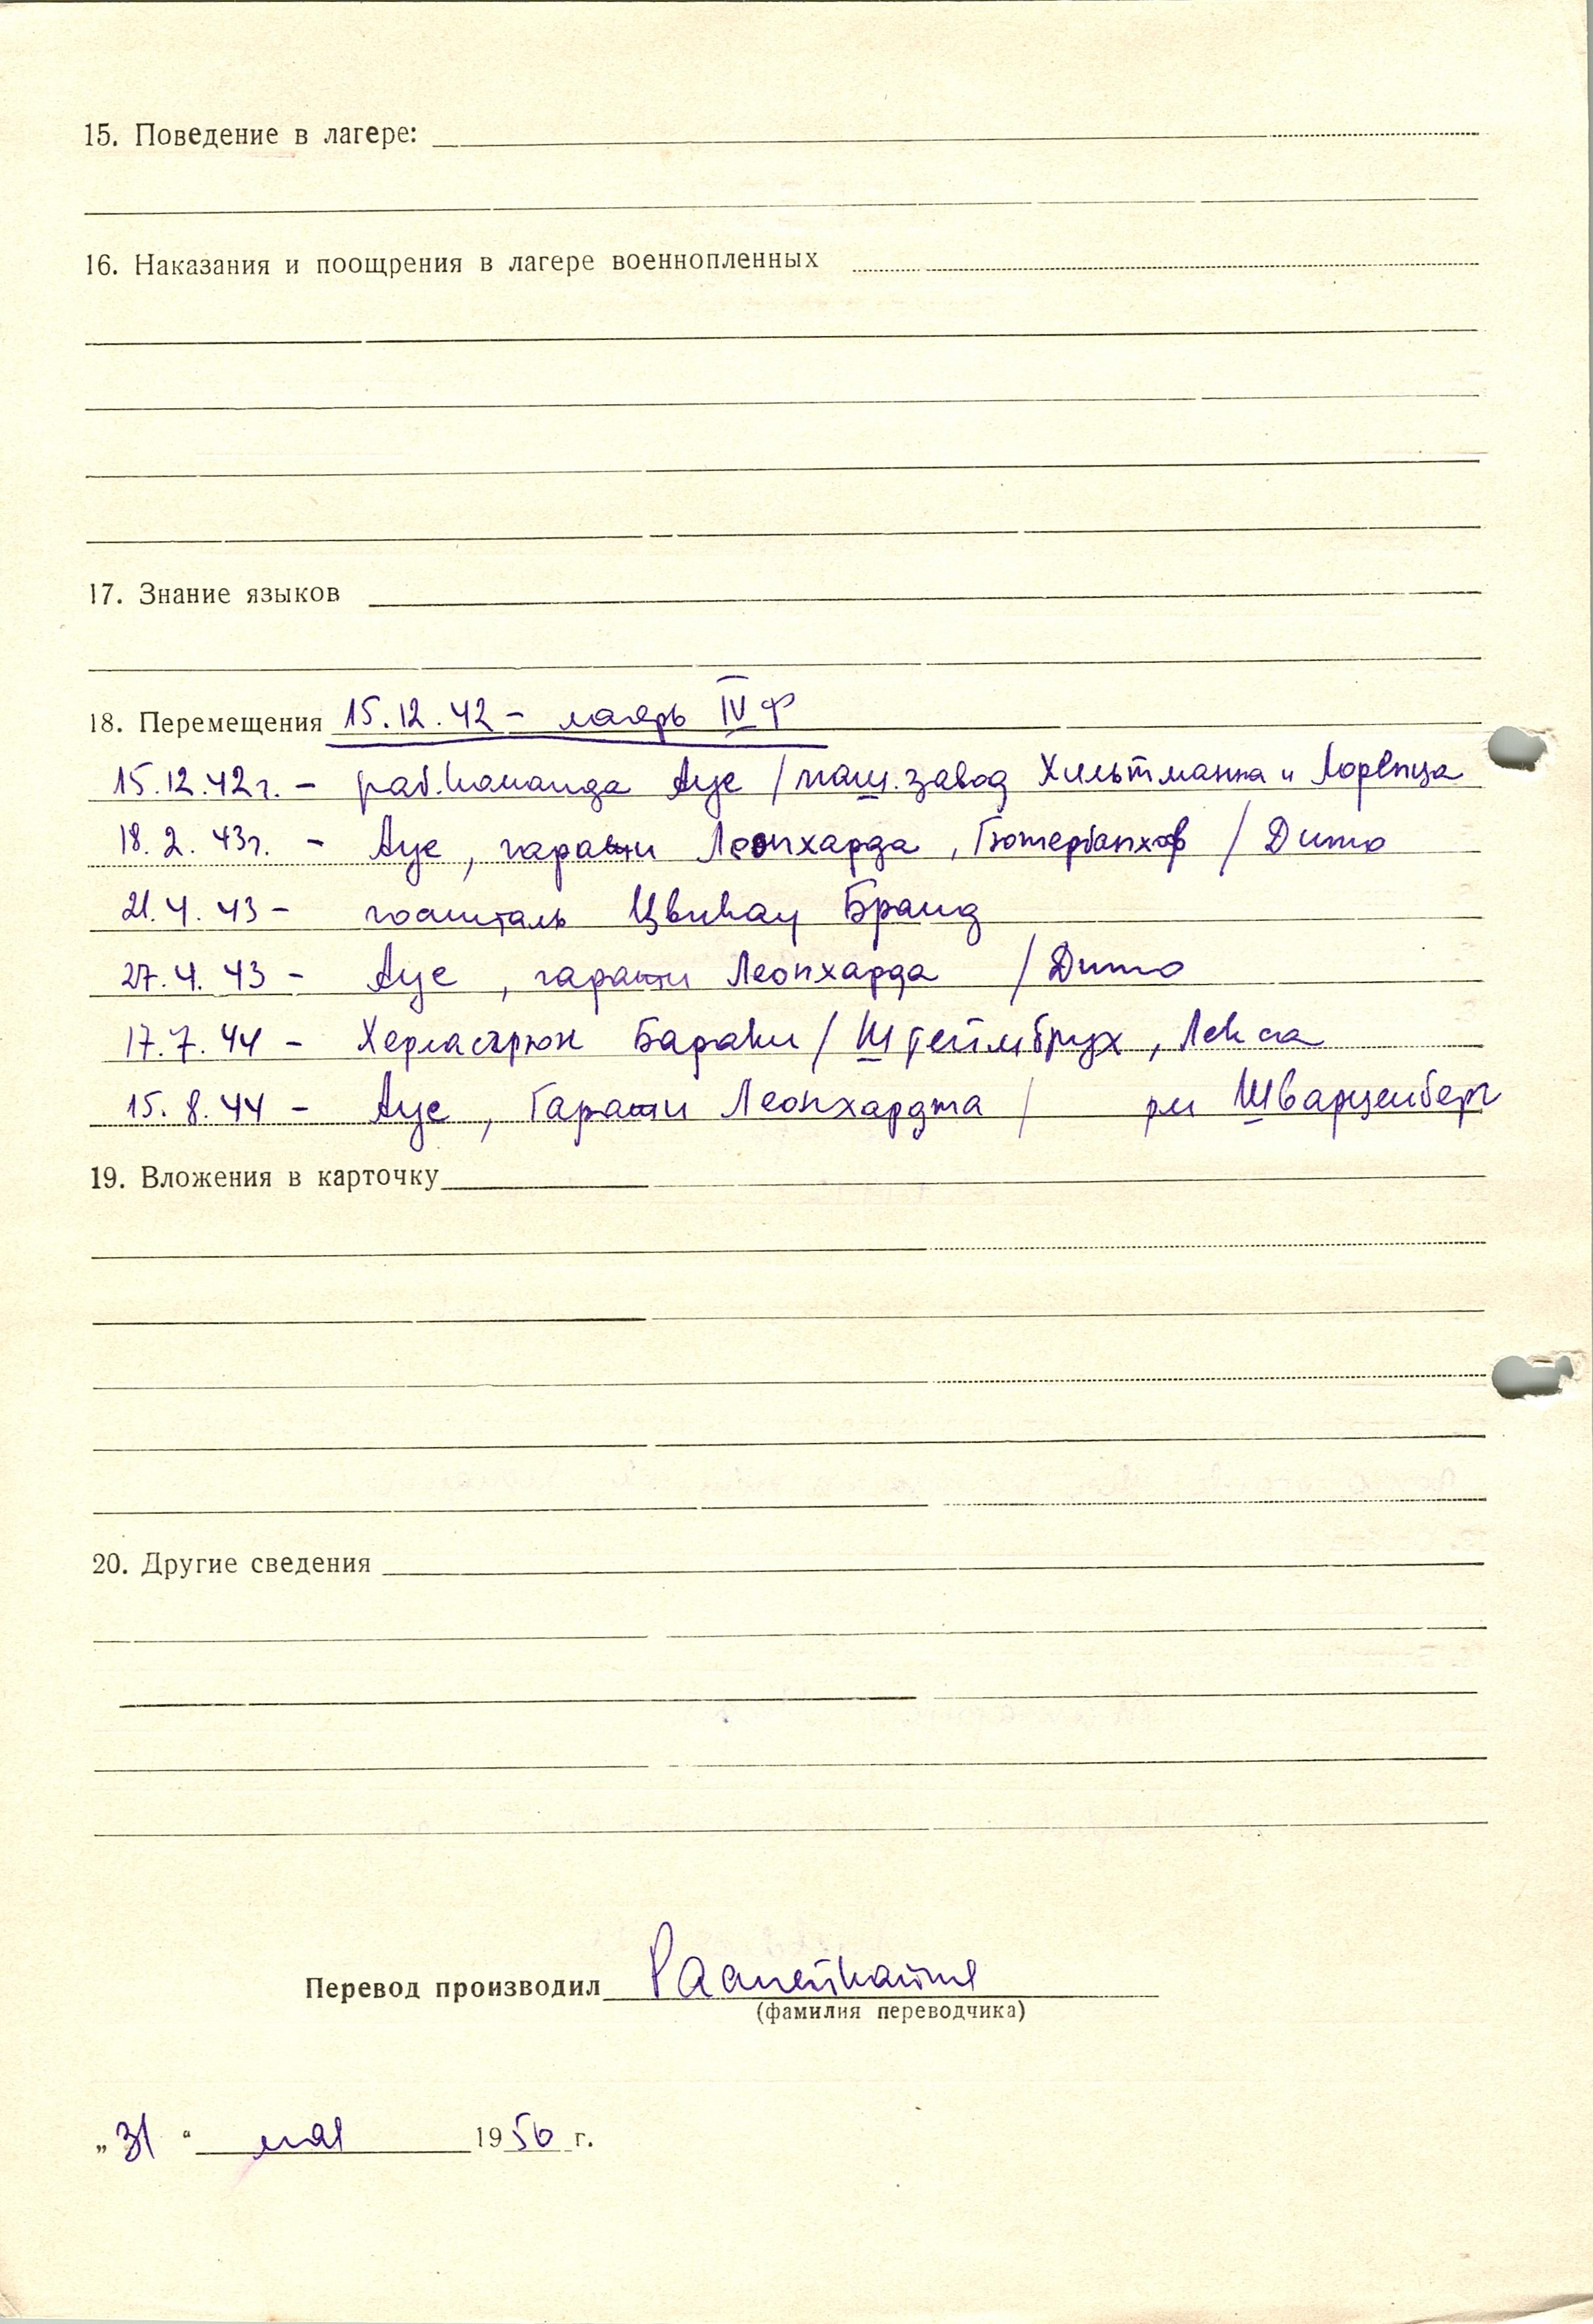 15. Поведение в лагере:
16. Наказания и поощрения в лагере военнопленных
17. Знание языков
18. Перемещения 15.12.42 – лагерь IV Ф
15.12.42г. – раб.команда Ауе /маш.завод Хильтманна и Лоренца
18.2.43г. – Ауе, гаражи Леонхарда, Гютербанхоф / Дито
21.4.43 – госпиталь Цвикау Бранд
27.4.43 – Ауе, гаражи Леонхарда / Дито
17.7.44 – Херласгрюн Бараки / Штейлмбрух, Лекса
15.8.44 – Ауе, Гаражи Леонхардта / рм Шварценберг
19. Вложения в карточку
20. Другие сведения
Перевод производил
(фамилия переводчика)
„31" мая 1950 г.